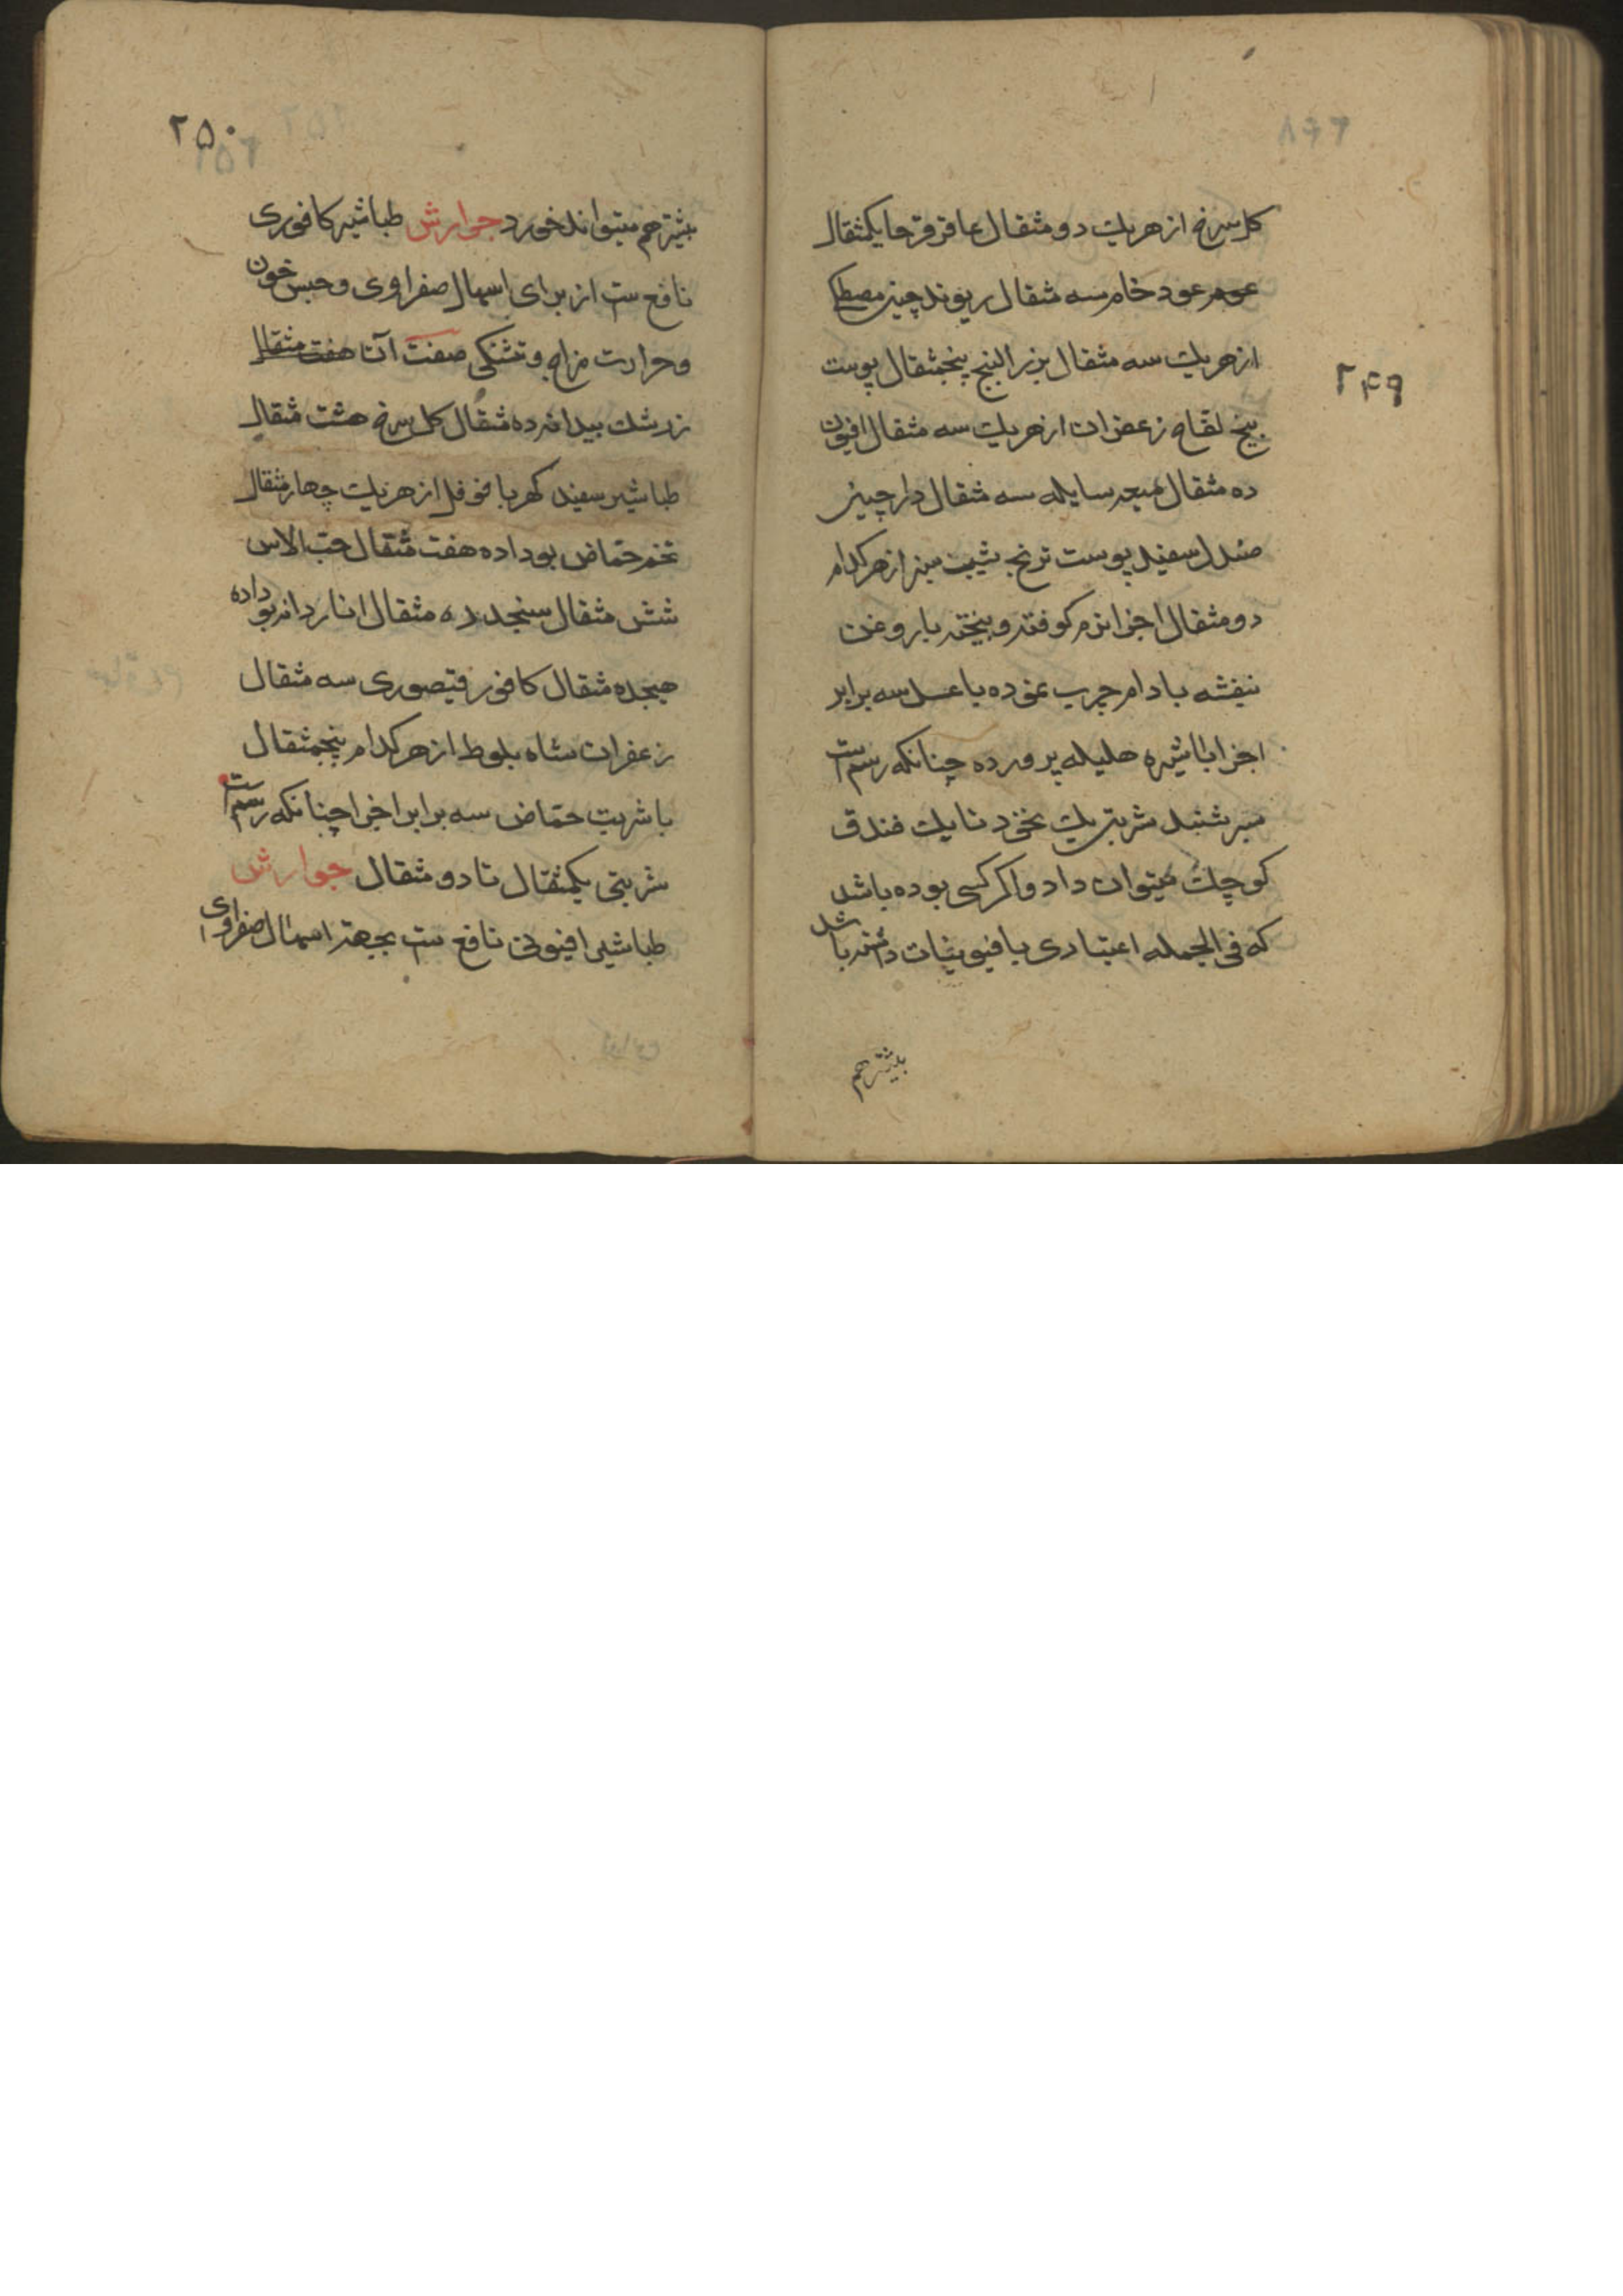 ۲۴۹
کل سرخ از هریك دو مثقال عاقرقرحا یکمثقال
عود خام سه مثقال ریوند چینی مصطکی
از هریك سه مثقال بزر البنج پنجمثقال پوست
بیخ لقاح زعفران از هریك سه مثقال افیون
ده مثقال میعه سایله سه مثقال دارچینی
صندل سفید پوست ترنج شیب سبز از هرکدام
دو مثقال اجزا نرم کوفته و بیخته با روغن
بنفشه بادام چرب نموده با عسل سه برابر
اجزا با شیره هلیله پرورده چنانکه رسم است
بسرشند شربتی یك نخود تا یك فندق
کوچك میتوان داد و اکر کسی بوده باشد
که فی الجمله اعتیادی بافیونیات داشته باشد
بیشتر هم
۲۵۰
بیشتر هم میتواند خورد جوارش طباشیر کافوری
نافع ست از برای اسهال صفراوی و حبس خون
و حرارت مزاج و تشنکی صفت آن هفت مثقال
زرشك بیدانه ده مثقال کل سرخ هشت مثقال
طباشیر سفید کهربا فوفل از هریك چهار مثقال
تخم حماض بوداده هفت مثقال حب الاس
شش مثقال سنجد ده مثقال انار دانه بوداده
هیجده مثقال کافور قیصوری سه مثقال
زعفران شاه بلوط از هرکدام پنجمثقال
با شربت حماض سه برابر اجزا چنانکه رسم است
شربتی یکمثقال تا دو مثقال جوارش
طباشیر افیونی نافع ست بجهته اسهال صفراوی